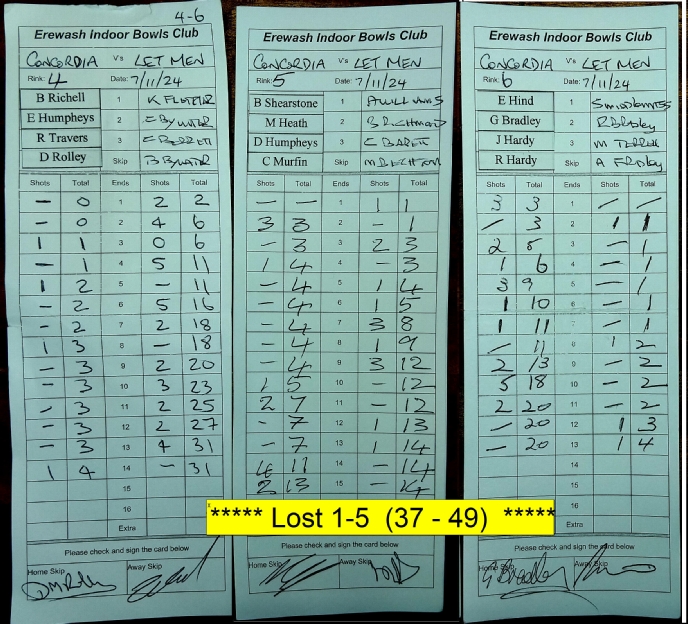 4-6
Erewash Indoor Bowls Club
CONCORDIA V's LET MEN
Rink: 4 Date: 7/11/24
B Richell 1 K FLETCHER
E Humpheys 2 E BYWATER
R Travers 3
D Rolley Skip B BYWATER
Shots Total Ends Shots Total
– 0 1 2 2
– 0 2 4 6
1 1 3 0 6
– 1 4 5 11
1 2 5 – 11
– 2 6 5 16
– 2 7 2 18
1 3 8 – 18
– 3 9 2 20
– 3 10 3 23
– 3 11 2 25
– 3 12 2 27
– 3 13 4 31
1 4 14 – 31
15
16
Extra
Please check and sign the card below
Home Skip Away Skip
Erewash Indoor Bowls Club
CONCORDIA V's LET MEN
Rink: 5 Date: 7/11/24
B Shearstone 1
M Heath 2
D Humpheys 3
C Murfin Skip
Shots Total Ends Shots Total
– – 1 1 1
3 3 2 – 1
– 3 3 2 3
1 4 4 – 3
– 4 5 1 4
– 4 6 1 5
– 4 7 3 8
– 4 8 1 9
– 4 9 3 12
1 5 10 – 12
2 7 11 – 12
– 7 12 1 13
– 7 13 1 14
4 11 14 – 14
2 13 15 – 14
Please check and sign the card below
Home Skip Away Skip
Erewash Indoor Bowls Club
CONCORDIA V's LET MEN
Rink: 6 Date: 7/11/24
E Hind 1
G Bradley 2
J Hardy 3
R Hardy Skip
Shots Total Ends Shots Total
3 3 1 – –
– 3 2 1 1
2 5 3 – 1
1 6 4 – 1
3 9 5 – 1
1 10 6 – 1
1 11 7 – 1
– 11 8 1 2
2 13 9 – 2
5 18 10 – 2
2 20 11 – 2
– 20 12 1 3
– 20 13 1 4
14
15
16
Extra
Please check and sign the card below
Home Skip Away Skip
G Bradley
***** Lost 1-5 (37 - 49) *****